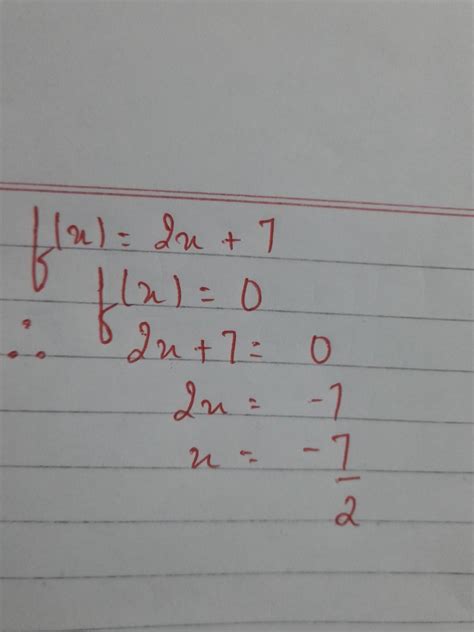 f(x) = 2x + 7
f(x) = 0
∴ 2x + 7 = 0
2x = -7
x = -7/2